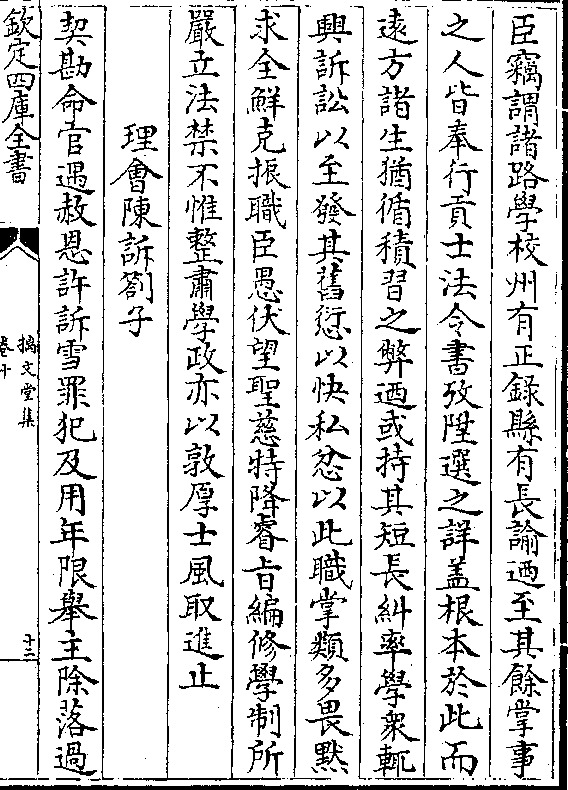 臣竊謂諸路學校州有正錄縣有長諭廼至其餘掌事
之人皆奉行貢士法令書攷陞選之詳盖根本於此而
遠方諸生猶循積習之弊廼或持其短長糾率學衆輒
興訴訟以至發其舊愆以快私忿以此職掌類多畏黙
求全鮮克振職臣愚伏望聖慈特降睿旨編修學制所
嚴立法禁不惟整肅學政亦以敦厚士風取進止
理會陳訴劄子
契勘命官遇赦恩許訴雪罪犯及用年限舉主除落過
欽定四庫全書
摛文堂集
卷十
十二